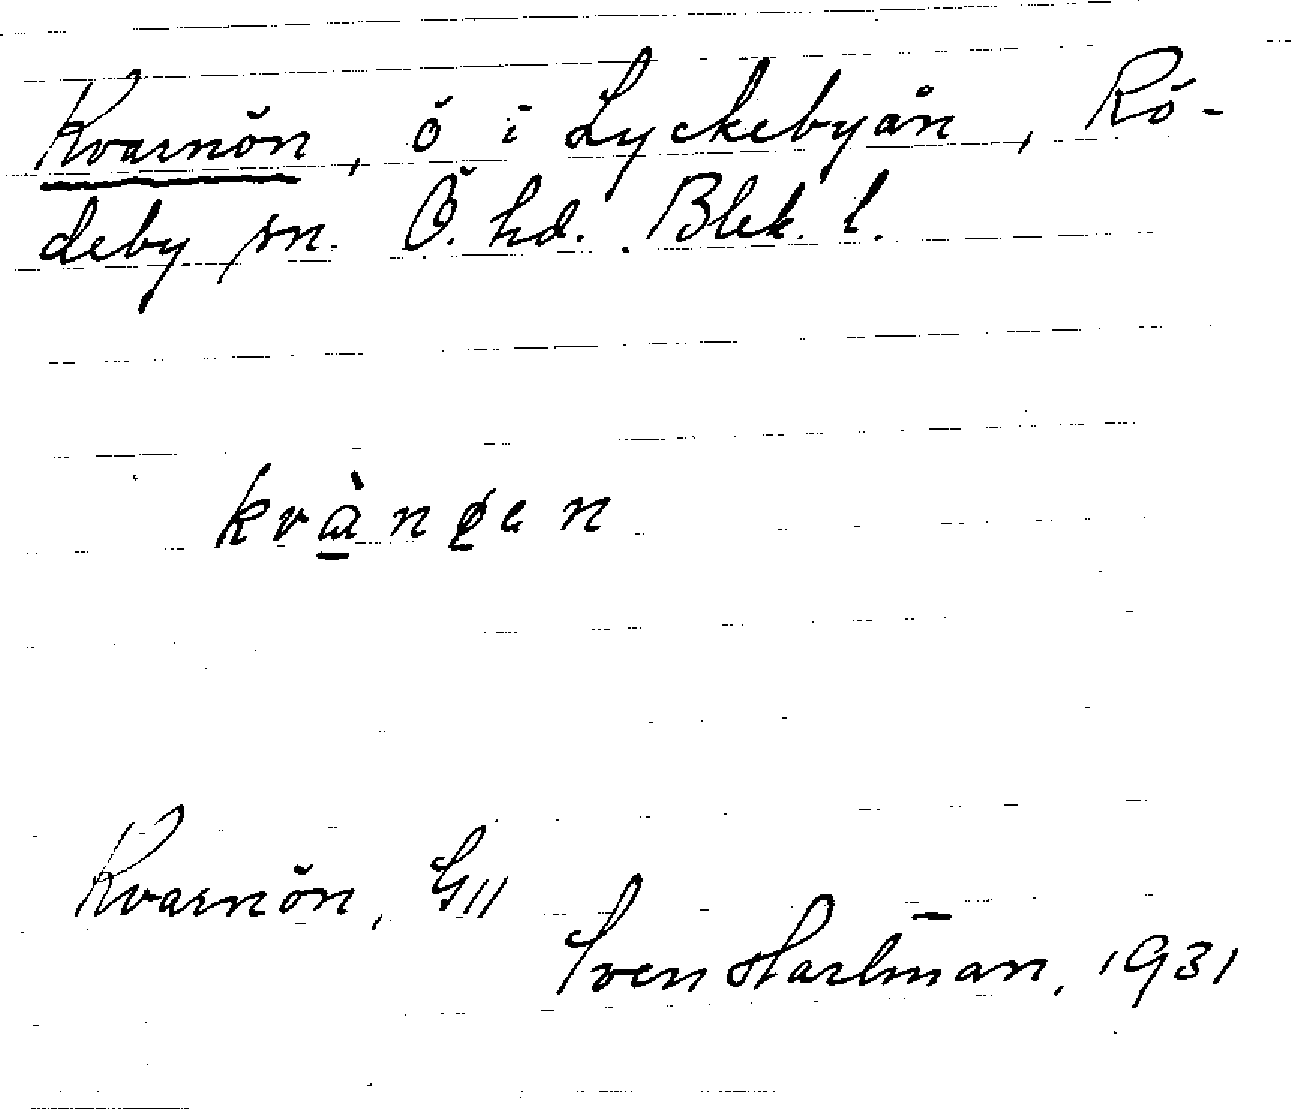 Kvarnön, ö i Lyckebyån, Rö-
deby sn. Ö. hd. Blek. l.
Kvarnön, G11
Sven Hartman, 1931